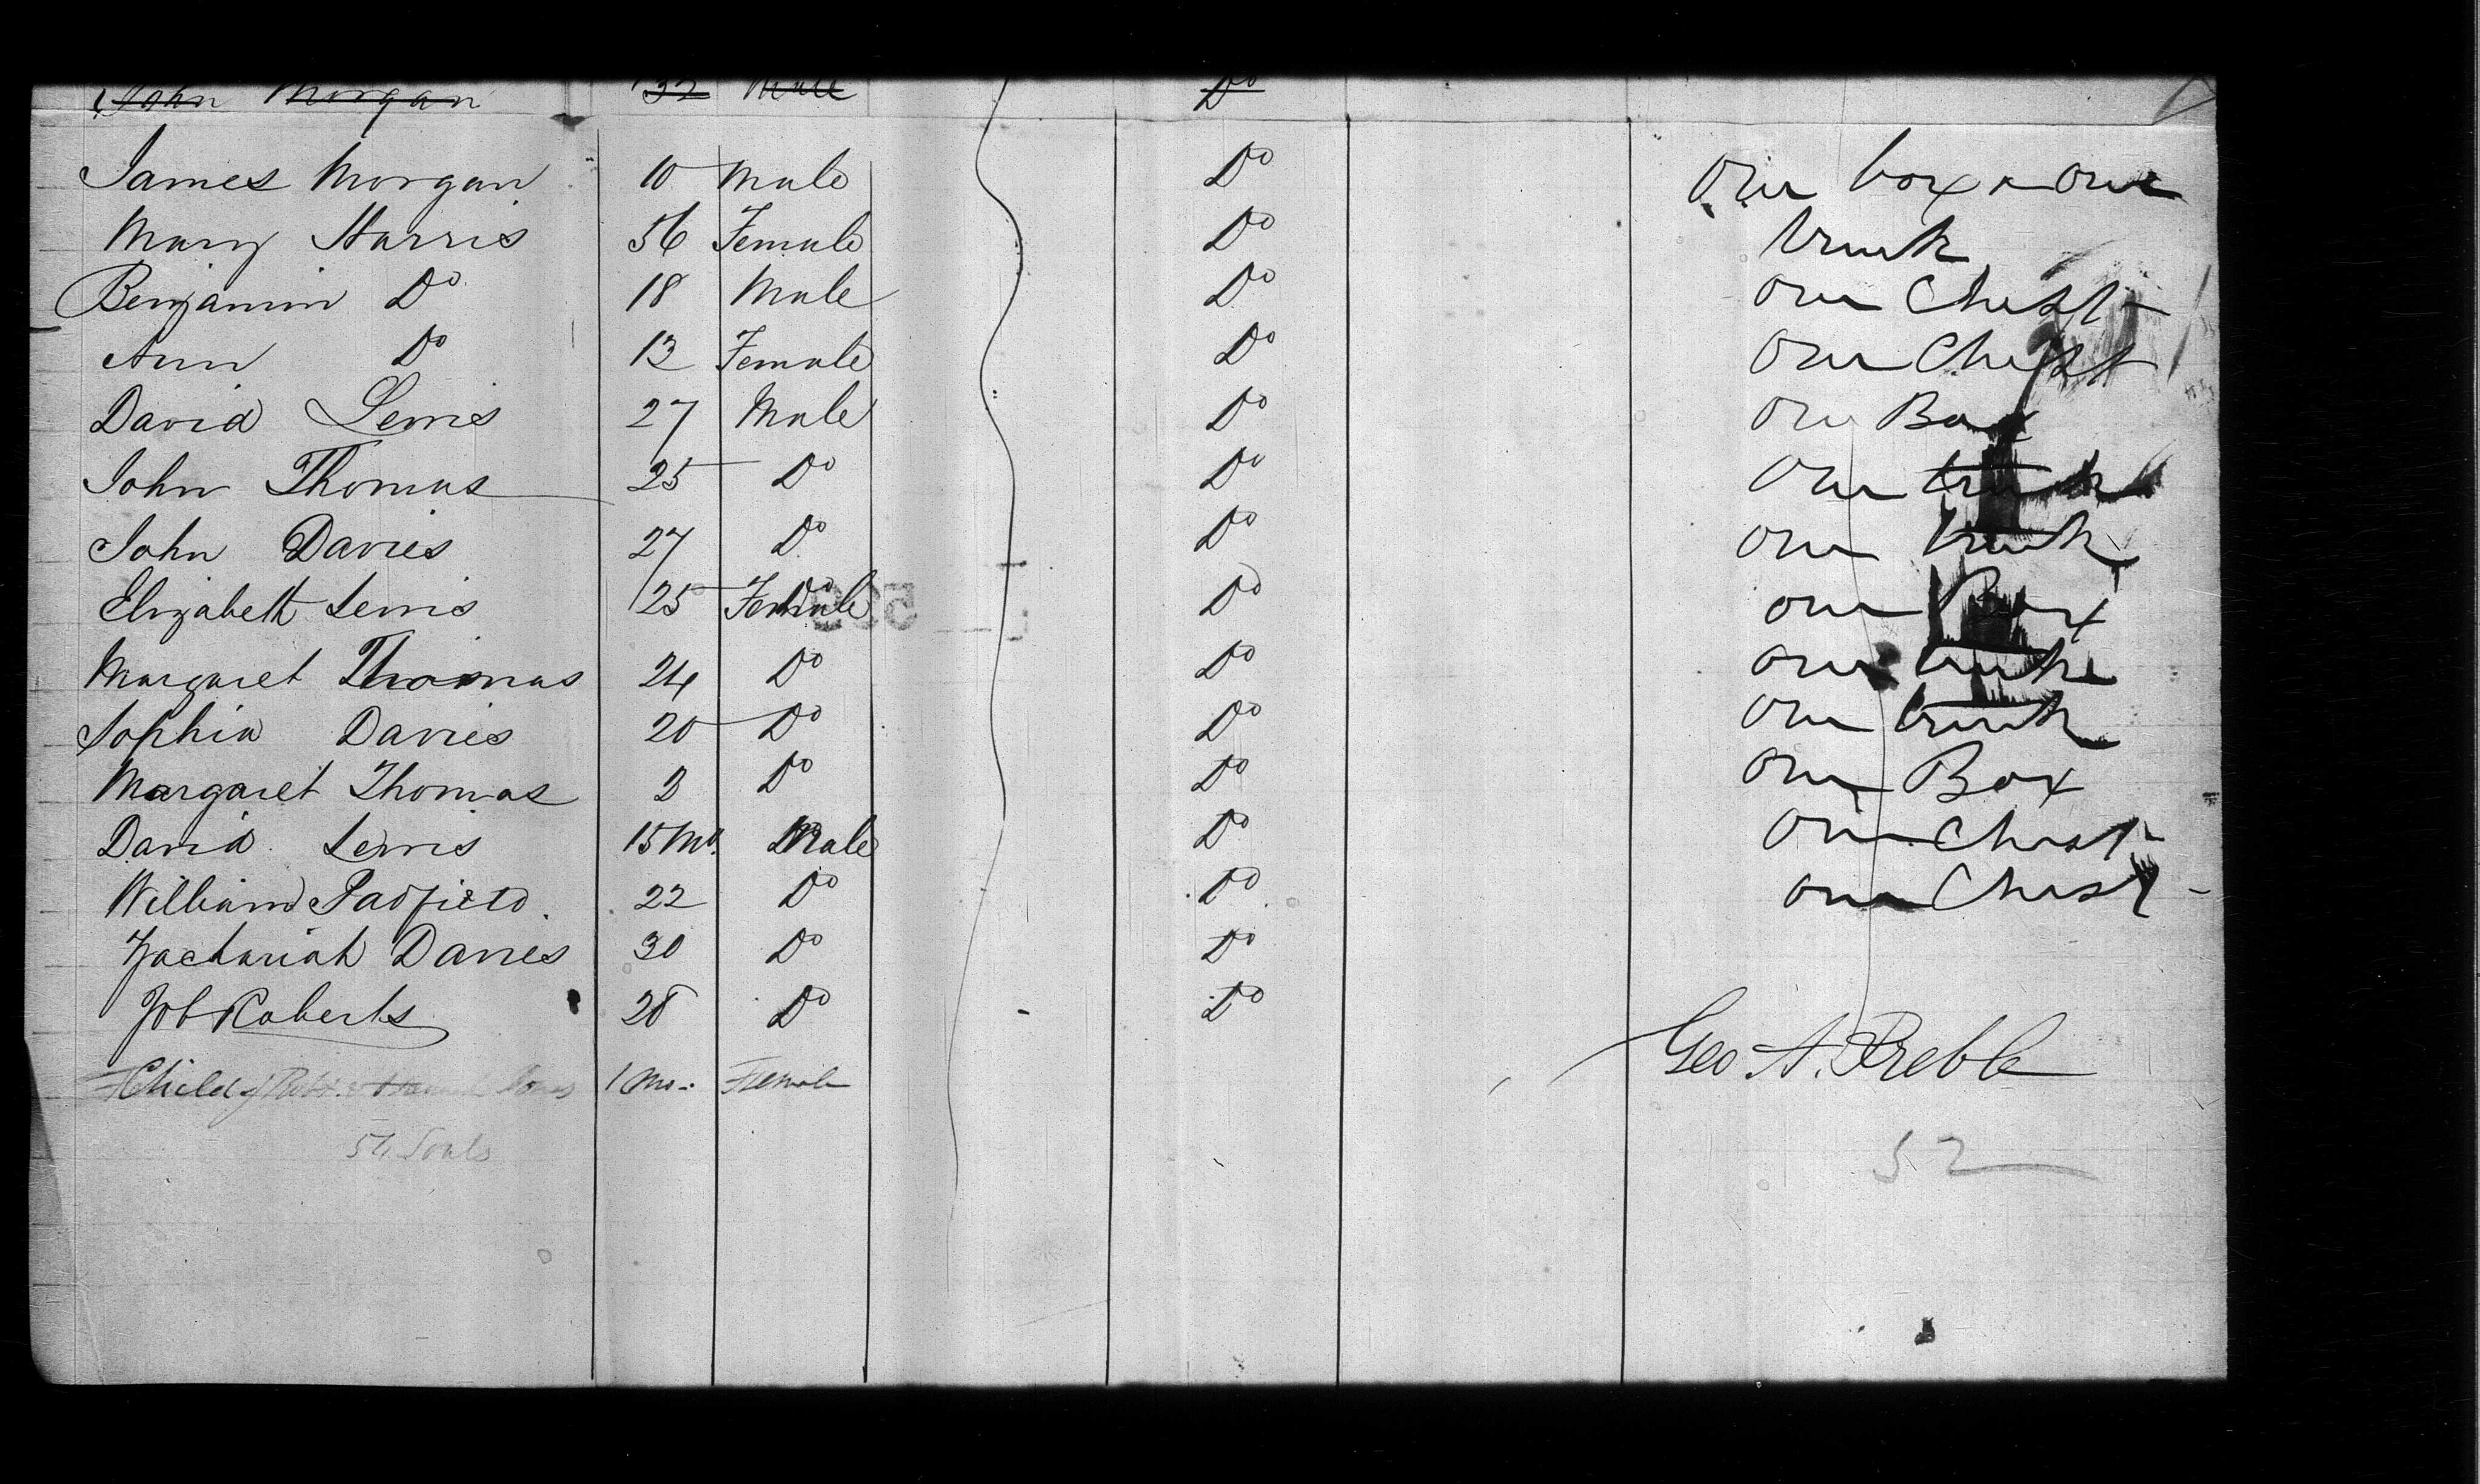 John Morgan 32 Male Do
James Morgan 10 Male Do One box & one
Mary Harris 56 Female Do trunk
Benjamin Do 18 Male Do One Chest
Ann Do 13 Female Do One Chest
David Lewis 27 Male Do One Box
John Thomas 25 Do Do One trunk
John Davies 27 Do Do One trunk
Elizabeth Lewis 25 Female Do One Box
Margaret Thomas 24 Do Do One trunk
Sophia Davies 20 Do Do One trunk
Margaret Thomas 3 Do Do One Box
David Lewis 15 Mo. Male Do One Chest
William Padfield 22 Do Do One Chest
Zachariah Davies 30 Do Do
Job Roberts 28 Do Do
Geo A. Preble
Child of Robt. & Jones 1 Mo. Female
Souls
52